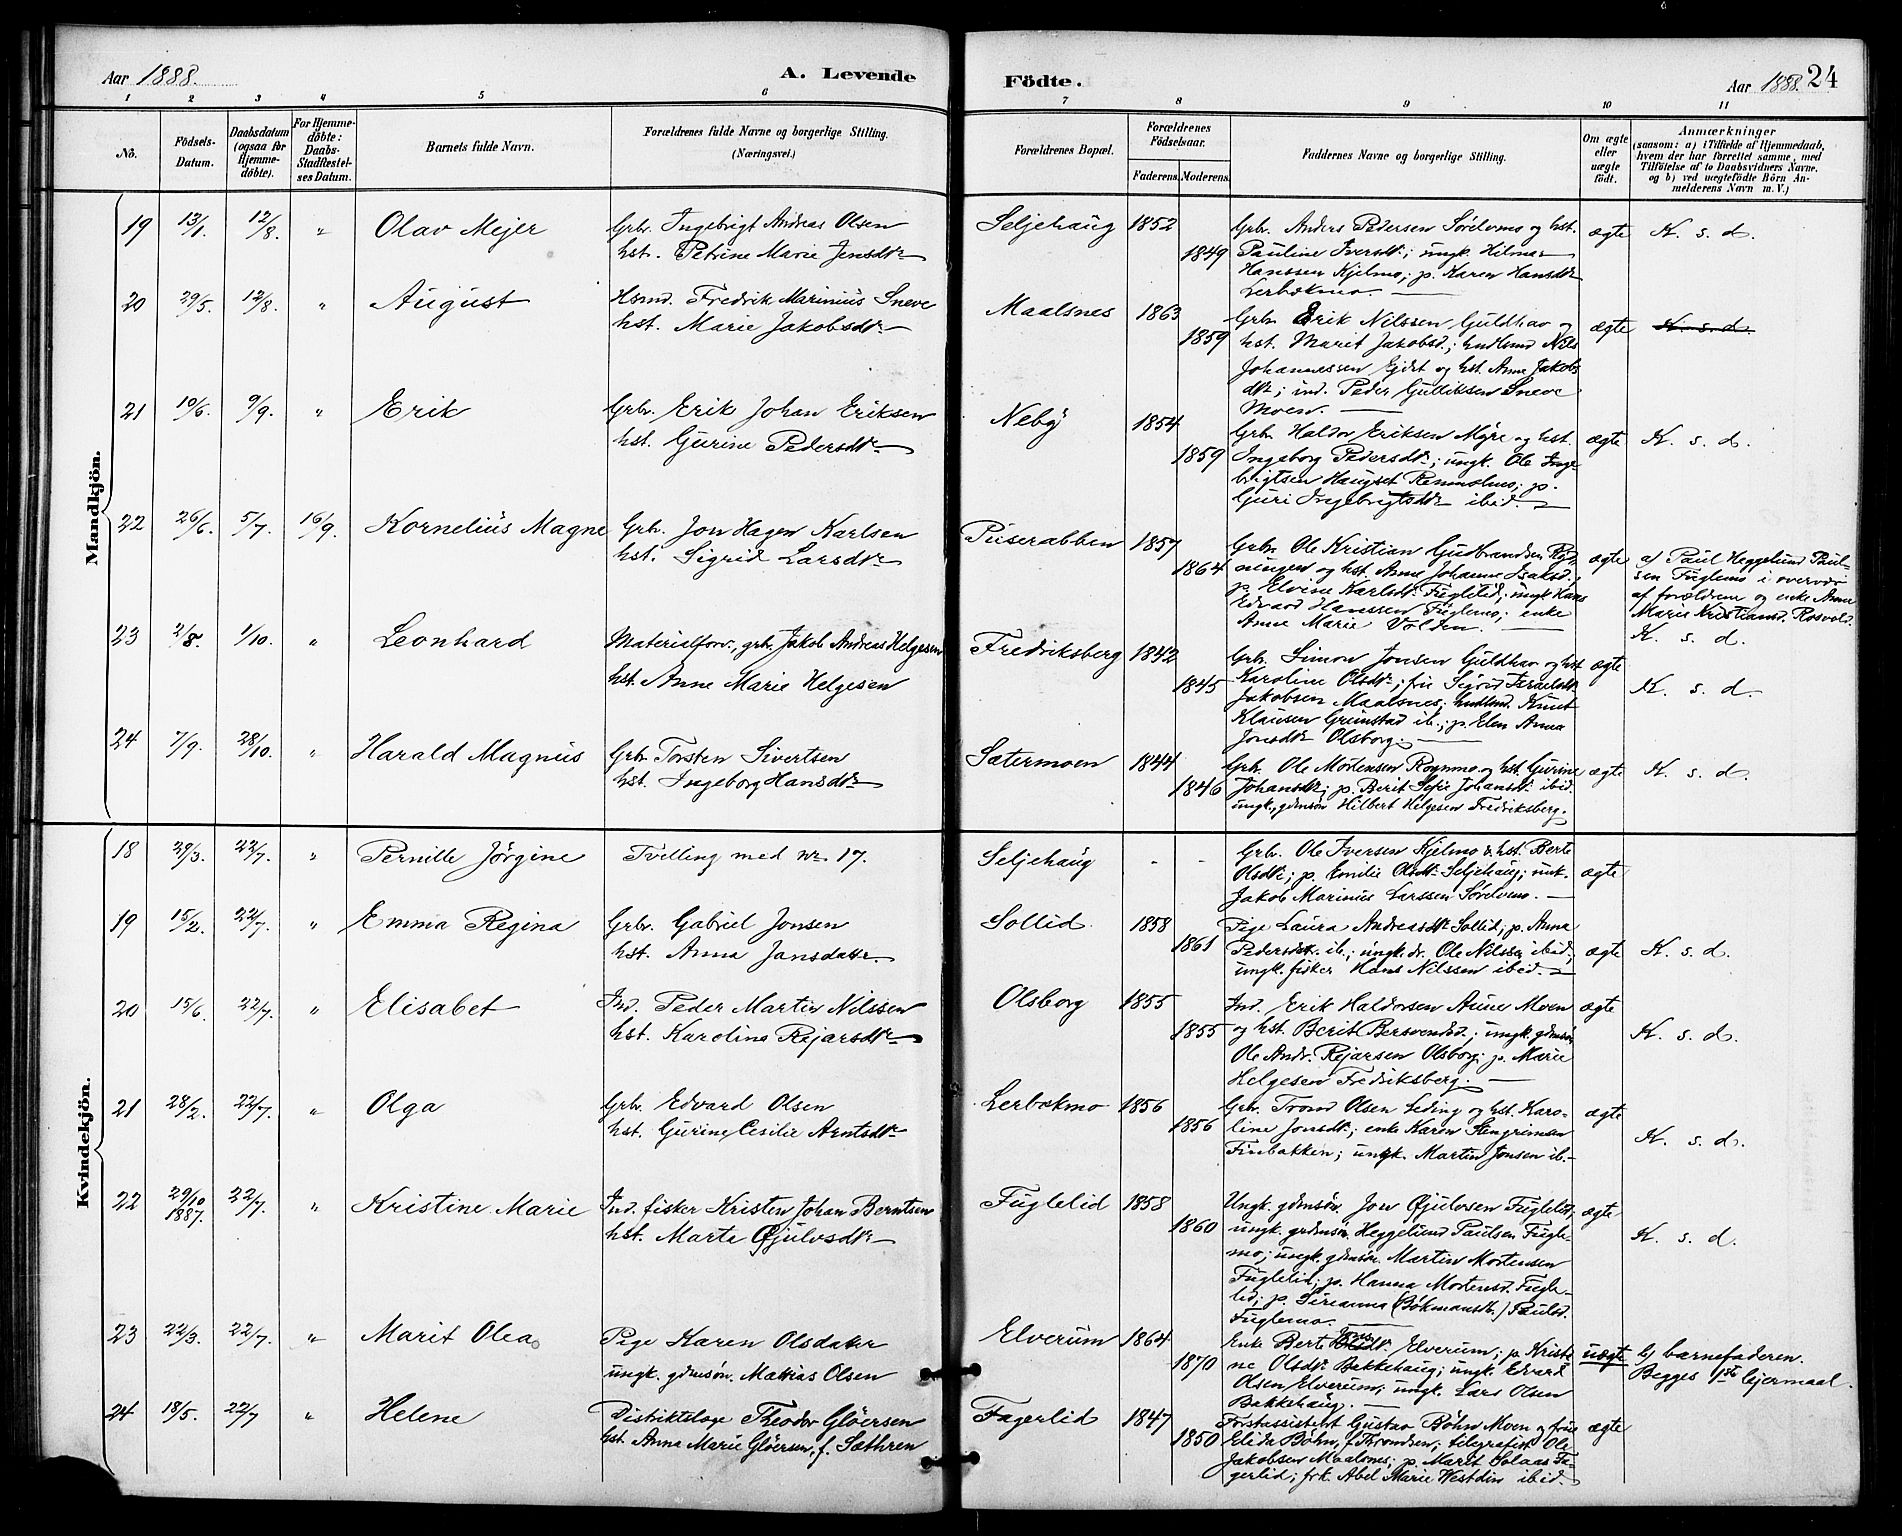 Aar 1888.
A. Levende
Födte.
Aar 1888. 24
1 2 3 4 5 6 7 8 9 10 11
No.
Födsels-Datum.
Daabsdatum (ogsaa for Hjemmedöbte).
For Hjemmedöbte: Daabs-Stadfestelses Datum.
Barnets fulde Navn.
Forældrenes fulde Navne og borgerlige Stilling. (Næringsvei.)
Forældrenes Bopæl.
Forældrenes Födselsaar.
Faderens. Moderens.
Faddernes Navne og borgerlige Stilling.
Om ægte eller uægte födt.
Anmærkninger
(saasom: a) i Tilfælde af Hjemmedaab,
hvem der har forrettet samme, med
Tilföielse af to Daabsvidners Navne.
og b) ved uægtefödte Börn An-
melderens Navn m. V.)
Mandkjön.
19 13/1. 12/8. " Olav Mejer
Grbr. Ingebrigt Andreas Olsen
hst. Petrine Marie Jensdtr
Seljehaug 1852
1849
Grbr. Anders Pedersen Sørdvmo og hst.
Pauline Iversdtr; ungk. Hilmar
Hanssen Kjelmo; p. Karen Hansdtr
Lerbækmo.
ægte K. s. d.
20 29/5. 12/8. " August
Hsmd. Fredrik Marinius Sneve
hst. Marie Jakobsdtr
Maalsnes 1863
1859
Grbr. Erik Nilssen Guldhav og
hst. Marit Jakobsd.; hndlmd Nils
Johannessen Ejdet og hst. Anne Jakobs
dtr; ind. Peder Gulliksen Sneve
Moen.
ægte K. s. d.
21 10/6. 9/9. " Erik
Grbr. Erik Johan Eriksen
hst. Gurine Pedersdtr
Neby 1854
1859
Grbr. Haldor Eriksen Myre og hst.
Ingeborg Pedersdtr; ungk. Ole Inge
brigtsen Haugset Remmolmo; p.
Guri Ingebrigtsdtr ibid.
ægte K. s. d.
22 26/6. 5/7. 16/9. Kornelius Magne
Grbr. Jon Hagen Karlsen
hst. Sigrid Larsdtr
Puserabben 1857
1864
Grbr. Ole Kristian Gudbrandsen Ryd-
ningen og hst. Anne Johanne Isaksd.
p. Elvine Karlsdtr Fuglelid; ungk Hans
Edvard Hanssen Fuglemo; enke
Anne Marie Volden.
ægte
af Paul Heggelund Paul-
sen Fuglemo i overvær
af forældrene og enke Anne
Marie Kristiansd. Rosvold.
K. s. d.
23 2/8. 1/10. " Leonhard
Materialforv., grbr. Jakob Andreas Helgesen
hst. Anne Marie Helgesen
Fredriksberg 1842
1845
Grbr. Simon Jonsen Guldhav og hst
Karoline Olsdtr; frie Sigrid Israelsdtr
Jakobsen Maalsnes; hndlmd. Knut
Klausen Grimstad ib.; p. Elen Anna
Jonsdtr Olsborg.
ægte K. s. d.
24 7/9. 28/10. " Harald Magnus
Grbr. Torsten Sivertsen
hst. Ingeborg Hansdtr
Sætermoen 1844
1846
Grbr. Ole Mortensen Rognmo og hst. Gurine
Johansdtr; p. Berit Sofie Johansdtr ibid.
ungk., gdmsøn Hilbert Helgesen Fredriksberg.
ægte K. s. d.
Kvindekjön.
18 29/3. 22/7. " Pernille Jörgine
Tvelling med nr. 17.
Seljehaug - -
Grbr. Ole Iversen Kjelmo & hst. Berte
Olsdtr; p. Emilie Olsdtr Seljehaug; unk.
Jakob Marinius Larssen Sørdvmo.
ægte
19 15/2. 22/7. " Emma Regina
Grbr. Gabriel Jonsen
hst. Anna Jansdatr.
Sollid. 1858
1861
Pige Laura Andreasdtr Sollid; p. Anna
Pedersdtr ib.; ungk. dr. Ole Nilssen ibid.;
ungk. fisker Hans Nilssen ibid.
ægte K. s. d.
20 15/6. 22/7. " Elisabet
Ind. Peder Martin Nilssen
hst. Karoline Rejarsdtr
Olsborg 1855
1855
Ind. Erik Haldorsen Aune Moen
og hst. Berit Bersvendsd.; ungk. gdmsøn
Ole Andr. Rejarsen Olsborg; p. Marie
Helgesen Fredriksberg.
ægte K. s. d.
21 28/2. 22/7. " Olga
Grbr. Edvard Olsen
hst. Gurine Cesilie Arntsdtr
Lerbækmo 1856
1856
Grbr. Trond Olsen Leding og hst. Karo-
line Jonsdtr; enke Karen Stengrimsen
Finbakken; ungk. Martin Jonsen ib.
ægte K. s. d.
22 29/10 1887. 22/7. " Kristine Marie
Ind. fisker Kristen Johan Berntsen
hst. Marta Øjulvsdtr
Fuglelid 1858
1860
Ungk. gdmsøn. Jon Øjulvsen Fuglelid;
ungk. grdmsøn. Heggelund Paulsen Fugle-
mo; ungk. gdmsøn. Martin Mortensen
Fuglelid; p. Hanna Mortensd. Fugle-
lid; p. Sirianna (Bökmansdtr.) Paulsd.
Fuglemo.
ægte K. s. d.
23 22/3. 22/7. " Marit Olea
Pige Karen Olsdater
ungk. gdmsøn. Mattias Olsen
Elverum 1864
1870
Enke Berte Jonsdtr. Elverum; p. Kristi-
ne Olsdtr Bakkehaug; ungk. Edvard
Olsen Elverum; ungk. Lars Olsen
Bakkehaug.
uægte
b) barnefaderen.
Begges 1ste lejermaal.
24 18/5. 22/7 " Helene
Distriktslæge Theodor Glöersen
hst. Anna Marie Glöersen, f. Sæthren
Fagerlid 1847
1850
Forstassistent Gustav Bøhn Moen og frue
Elida Bøhn, f. Throndsen; telegrafist Ole
Jakobsen Maalsnes; p. Marit Solaas Fa-
gerlid; frk. Abel Marie Westdin ibid.
ægte